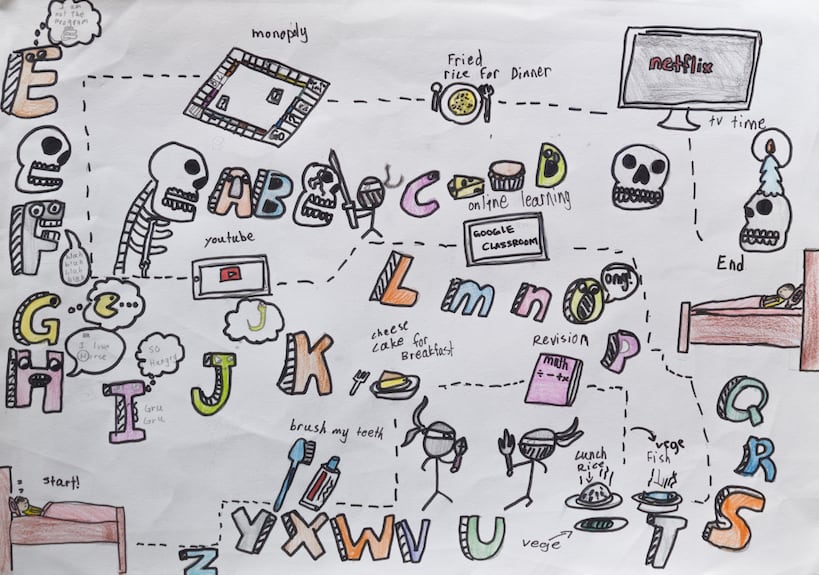 I am
not the
Program
monopoly
Fried
rice For Dinner
netflix
tv time
E
A B C D
online learning
GOOGLE
CLASSROOM
youtube
F
blah
blah
blah
blah
End
L m n O
omg!
G
e
J
cheese
cake for
Breakfast
REVISION
math
÷ - + x
P
H
I love
Horse
SO
Hungry
I
Gru
Gru
J
K
Q
brush my teeth
vege
Fish
Lunch
Rice
R
start!
S
vege
T
Y X W V U
Z